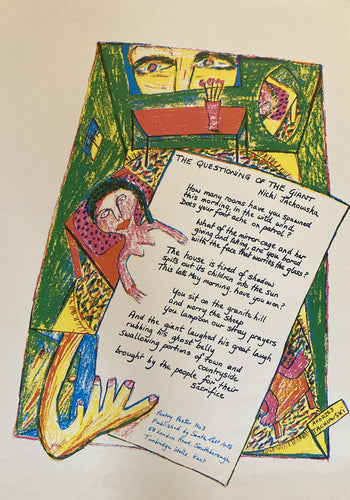 THE QUESTIONING OF THE GIANT
Nicki Jackowska
How many rooms have you spawned
this morning, in the wild wind
Does your foot ache on patrol?
What of the mirror-cage and her
giving and taking, are you bored
with the face that worries the glass?
The house is tired of shadow
spits out its children into the sun
This late May morning, have you won?
You sit on the granite hill
and worry the sheep
You lampoon our stray prayers
And the giant laughed his great laugh
rubbing his ghost belly
swallowing portions of town and
countryside
brought by the people for their
sacrifice
Poetry Poster No 3
Published by South East Arts
58 London Road Southborough
Tunbridge Wells Kent